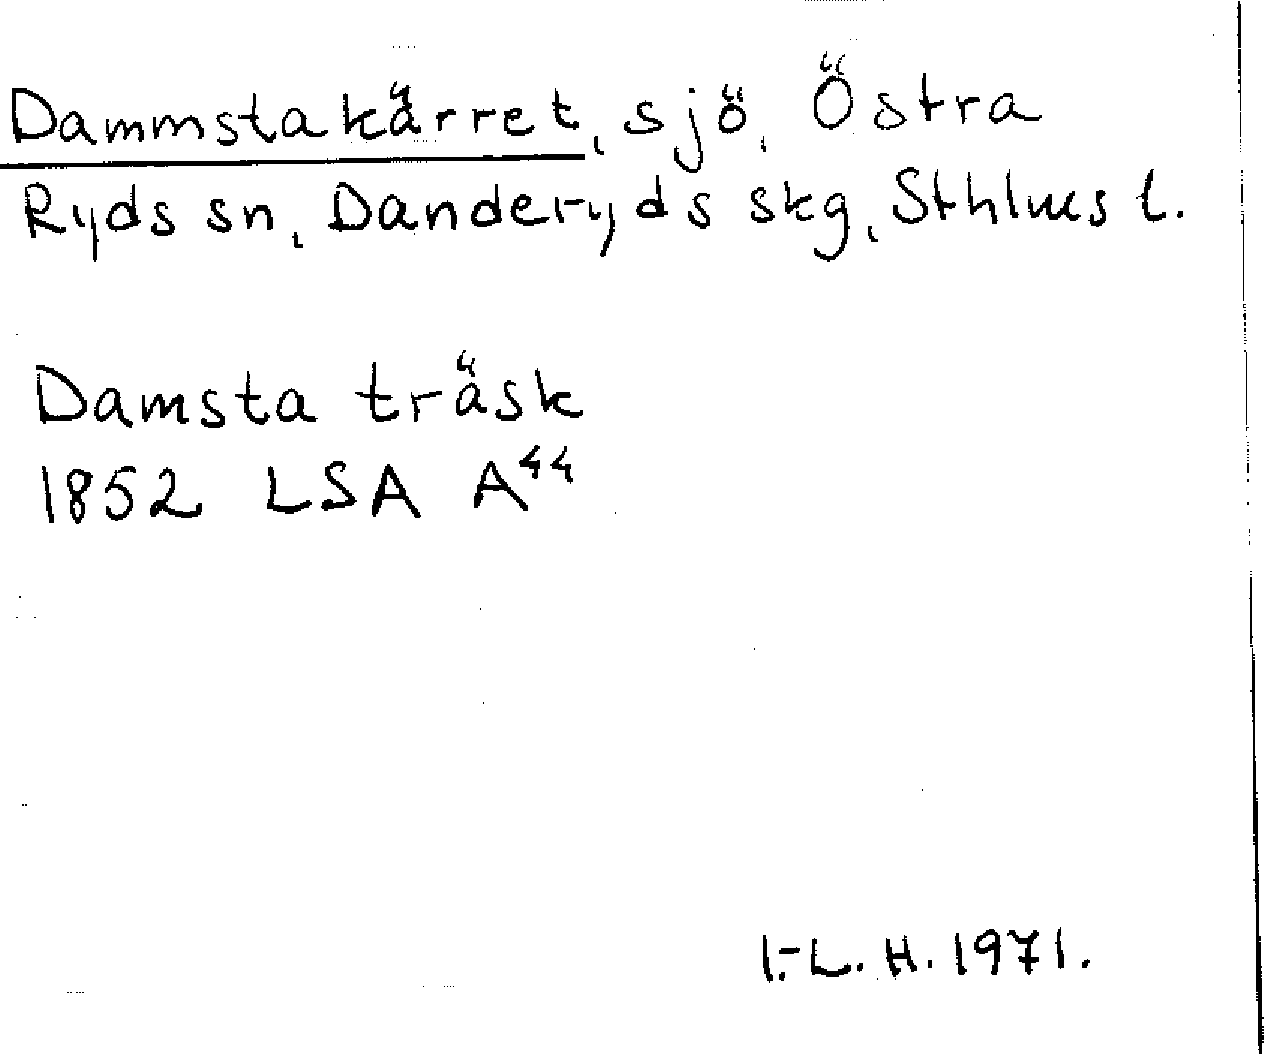 Dammstakärret, sjö, Östra
Ryds sn, Danderyds skg, Sthlms l.
Damsta träsk
1852 LSA A⁴⁴
I.-L. H. 1971.